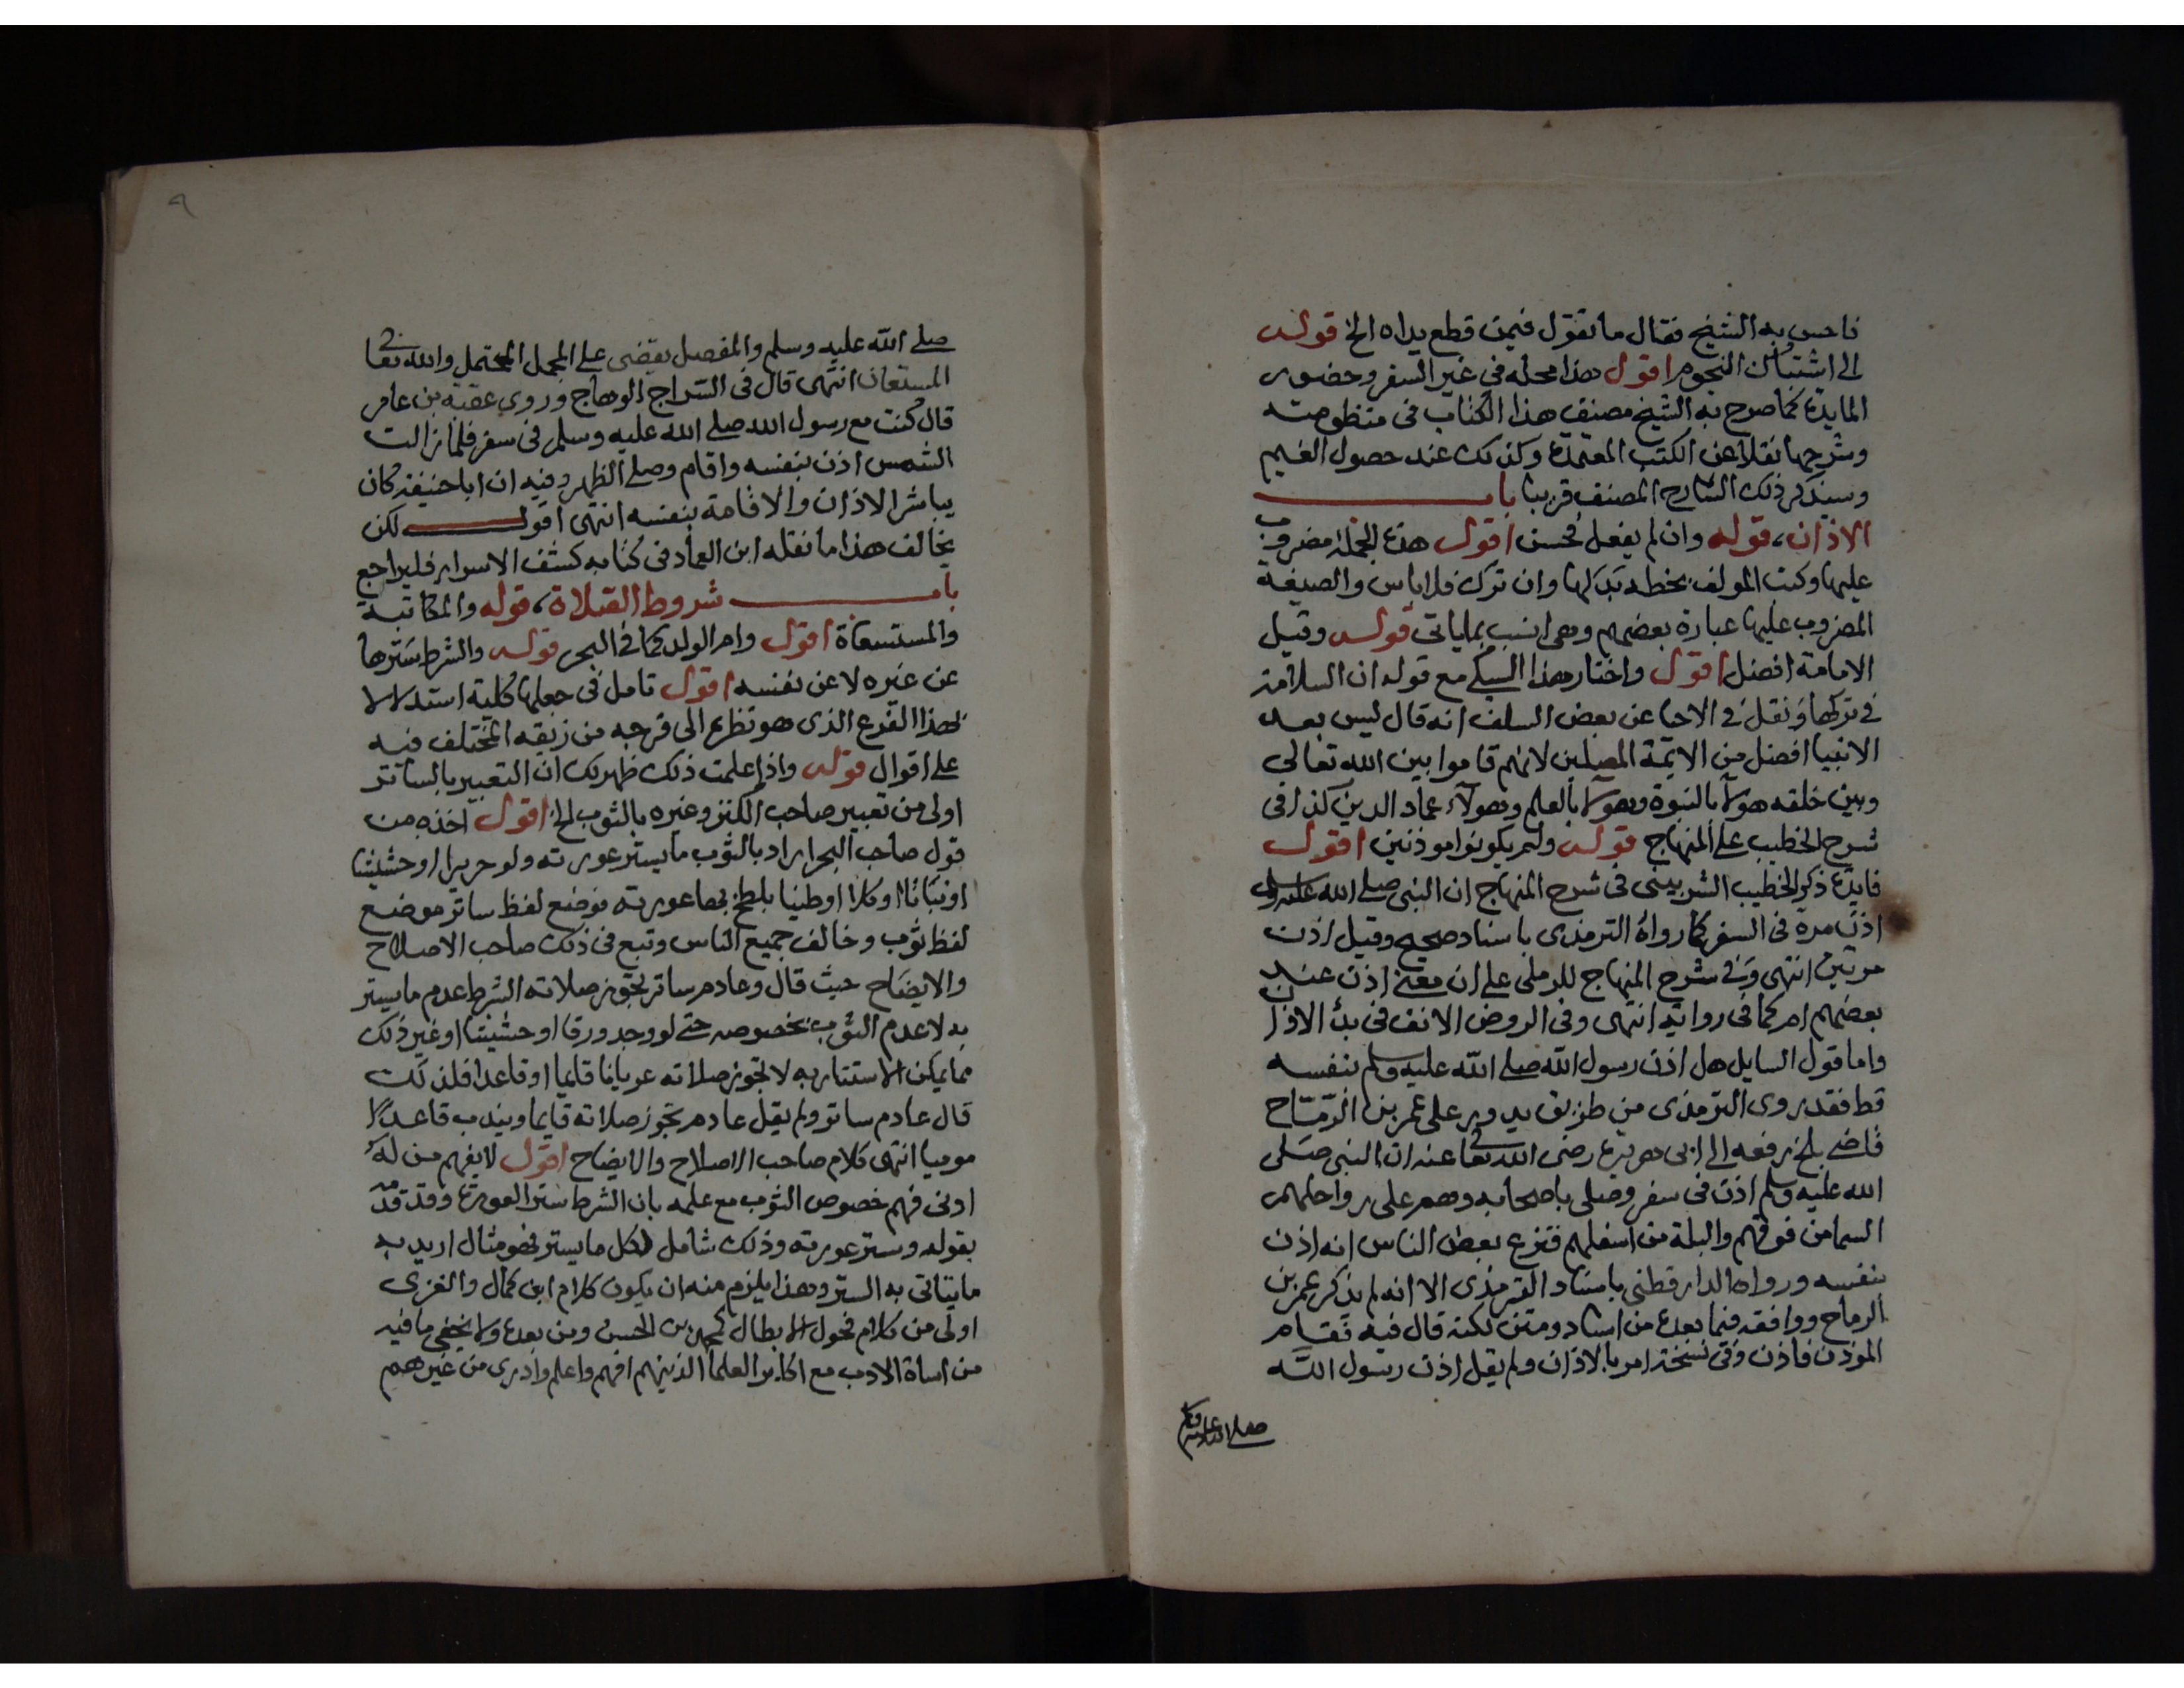 فاحس به الشيخ فقال ما تقول فيمن قطع يداه الخ قوله
الى اشتباك النجوم اقول هذا محله في غير السفر وحضور
المايدة كما صرح به الشيخ مصنف هذا الكتاب فى منظومته
وشرحها نقلا عن الكتب المعتمدة وكذلك عند حصول الغيم
وسيذكر ذلك الشارح المصنف قريبا باب
الاذان، قوله وان لم يفعل فحسن اقول هذه الجملة مضروب
عليها وكتب المولف بخطه بدلها وان ترك فلا باس والصيغة
المضروب عليها عبارة بعضهم وهى انسب بماياتى قوله وقيل
الامامة افضل اقول واختار هذا السبكى مع قوله ان السلامة
في تركها ونقل في الاحيا عن بعض السلف انه قال ليس بعد
الانبيا افضل من الايمة المصلين لانهم قاموا بين الله تعالى
وبين خلقه هولاء بالنبوة وهولاء بالعلم وهولاء عماد الدين كذا فى
شرح الخطيب على المنهاج قوله ولم يكونوا موذنين اقول
فايدة ذكر الخطيب الشربينى فى شرح المنهاج ان النبى صلى الله عليه وسلم
اذن مرة فى السفر كما رواه الترمذى باسناد صحيح وقيل اذن
مرتين انتهى وفى شرح المنهاج للرملى على ان معنى اذن عند
بعضهم امر كما فى رواية انتهى وفى الروض الانف فى بدأ الاذان
واما قول السايل هل اذن رسول الله صلى الله عليه وسلم بنفسه
قط فقد روى الترمذى من طريق يدور على عمر بن الرمّاح
قاضى بلخ يرفعه الى ابى هريرة رضى الله تعالى عنه ان النبى صلى
الله عليه وسلم اذن فى سفر وصلى باصحابه وهم على رواحلهم
السما من فوقهم والبلة من اسفلهم فنزع بعض الناس انه اذن
بنفسه ورواه الدارقطنى باسناد الترمذى الا انه لم يذكر عمر بن
الرماح ووافقه فيما بعده من اسناد ومتن لكنه قال فيه فقام
الموذن فاذن وفى نسخة امر بالاذان ولم يقل اذن رسول الله
صلى الله عليه وسلم
٩
صلى الله عليه وسلم والمفصل يقضى على المجمل المحتمل والله تعالى
المستعان انتهى قال فى السراج الوهاج وروى عقبة بن عامر
قال كنت مع رسول الله صلى الله عليه وسلم فى سفر فلما زالت
الشمس اذن بنفسه واقام وصلى الظهر وفيه ان اباحنيفة كان
يباشر الاذان والاقامة بنفسه انتهى اقول لكن
يخالف هذا ما نقله ابن العماد فى كتابه كشف الاسرار فليراجع
باب شروط الصلاة، قوله والمكاتبة
والمستسعاة اقول وام الولد كما فى البحر قوله والشرط سترها
عن غيره لا عن نفسه اقول تامل فى جعلها كلية استدلالا
لهذا الفرع الذى هو نظره الى فرجه من زيقه المختلف فيه
على اقوال قوله واذا علمت ذلك ظهر لك ان التعبير بالساتر
اولى من تعبير صاحب الكنز وغيره بالثوب الخ اقول اخذه من
قول صاحب البحر اراد بالثوب ما يستر عورته ولو حريرا او حشيشا
او نباتا او كلا او طينا يلطخ بها عورته فوضع لفظ ساتر موضع
لفظ ثوب وخالف جميع الناس وتبع فى ذلك صاحب الاصلاح
والايضاح حيث قال وعادم ساتر تجوز صلاته الشرط عدم ما يستر
به لا عدم الثوب بخصوصه حتى لو وجد ورقا او حشيشا او غير ذلك
مما يمكن الاستتار به لا تجوز صلاته عريانا قايما او قاعدا فلذلك
قال عادم ساتر ولم يقل عادم تجوز صلاته قايما ويندب قاعدا
موميا انتهى كلام صاحب الاصلاح والايضاح اقول لا يفهم من له
ادنى فهم خصوص الثوب مع علمه بان الشرط ستر العورة وقد قدمه
بقوله وستر عورته وذلك شامل لكل ما يستر فهو مثال اريد به
ما يتاتى به الستر وهذا يلزم منه ان يكون كلام ابن كمال والغزى
اولى من كلام فحول الابطال كمحمد بن الحسن ومن بعده ولا يخفى ما فيه
من اساة الادب مع اكابر العلما الذينهم افهم واعلم وادرى من غيرهم